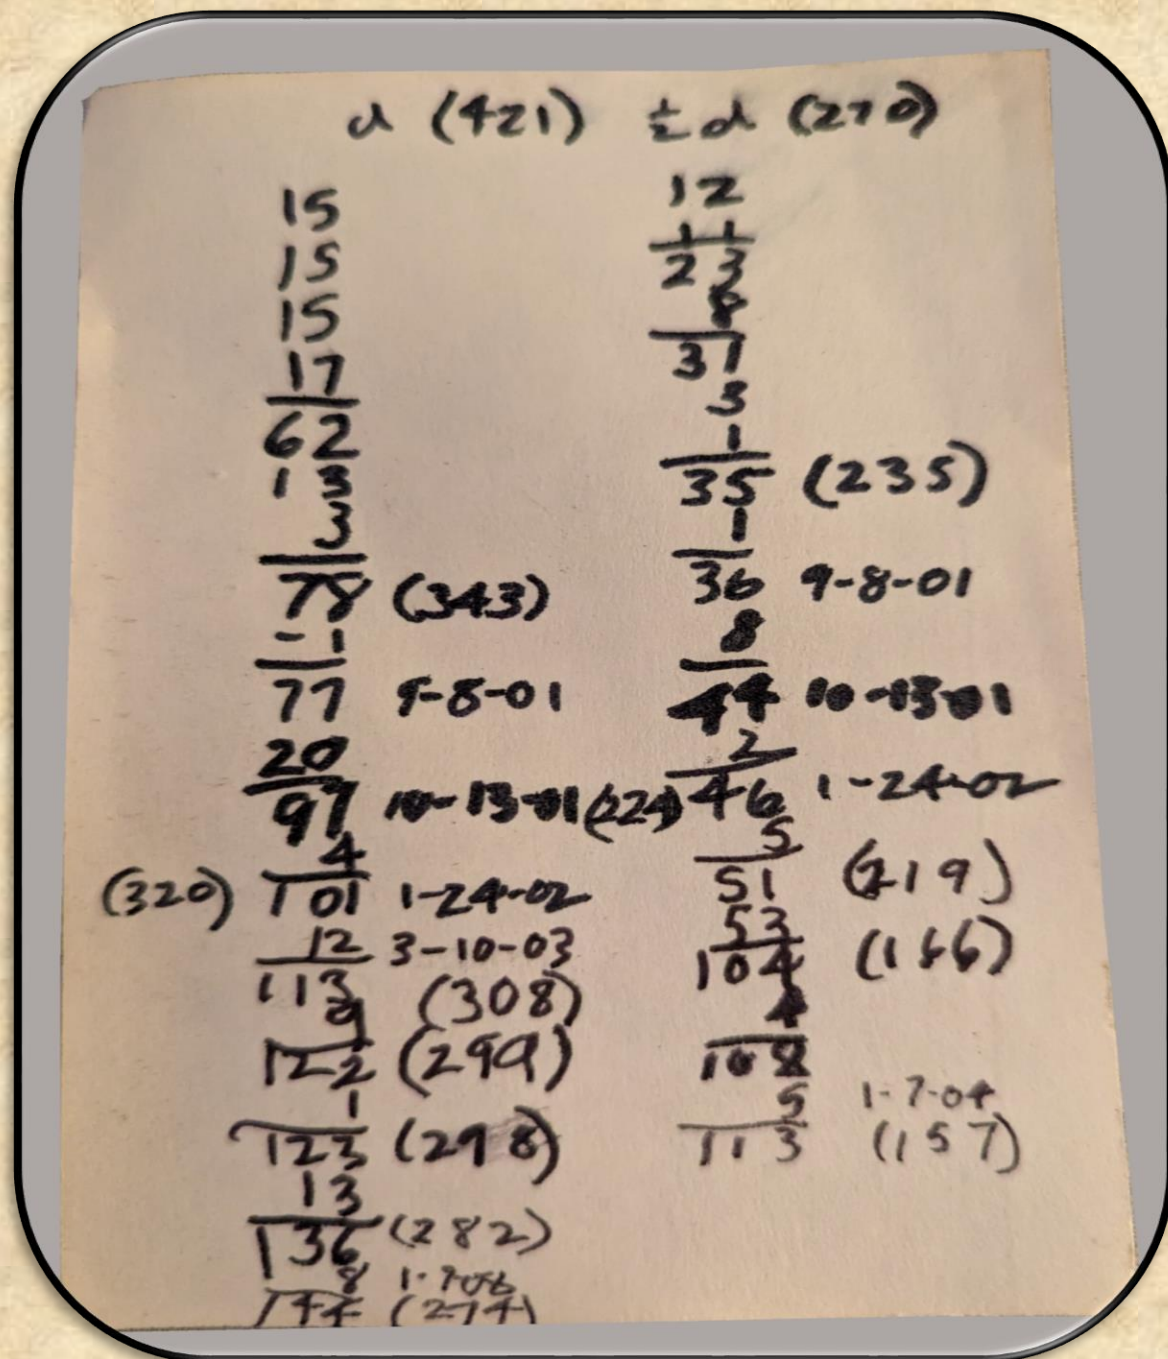 d (421)
15
15
15
17
62
13
3
78 (343)
-1
77 9-8-01
20
97 10-13-01
4
(320) 101 1-24-02
12 3-10-03
113 (308)
9
122 (299)
1
123 (298)
13
136 (282)
8
144 (274)
½ d (270)
12
11
23
8
31
3
1
35 (235)
1
36 9-8-01
8
44 10-13-01
2
(224) 46 1-24-02
5
51 (219)
53
104 (166)
4
108
5 1-7-04
113 (157)